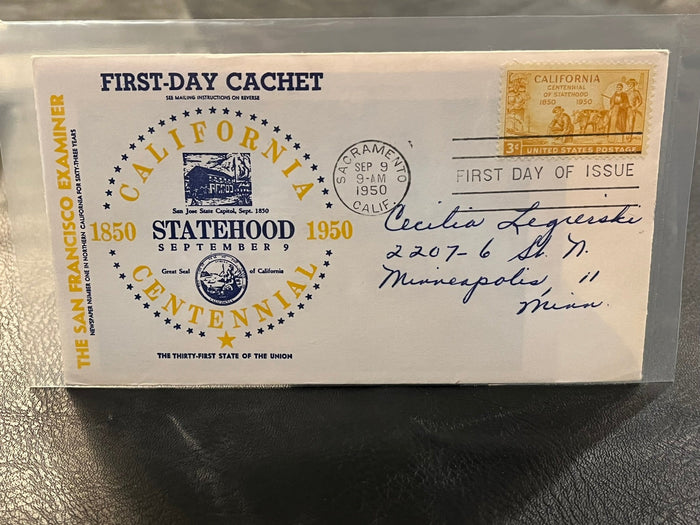 FIRST-DAY CACHET
SEE MAILING INSTRUCTIONS ON REVERSE
THE SAN FRANCISCO EXAMINER
NEWSPAPER NUMBER ONE IN NORTHERN CALIFORNIA FOR SIXTY-THREE YEARS
CALIFORNIA
San Jose State Capitol, Sept. 1850
1850 STATEHOOD 1950
SEPTEMBER 9
Great Seal of California
CENTENNIAL
THE THIRTY-FIRST STATE OF THE UNION
SACRAMENTO
SEP 9
9-AM
1950
CALIF.
CALIFORNIA
CENTENNIAL
OF STATEHOOD
1850 1950
3¢ UNITED STATES POSTAGE
FIRST DAY OF ISSUE
Cecilia Legierski
2207-6 St. N.
Minneapolis, 11
Minn.